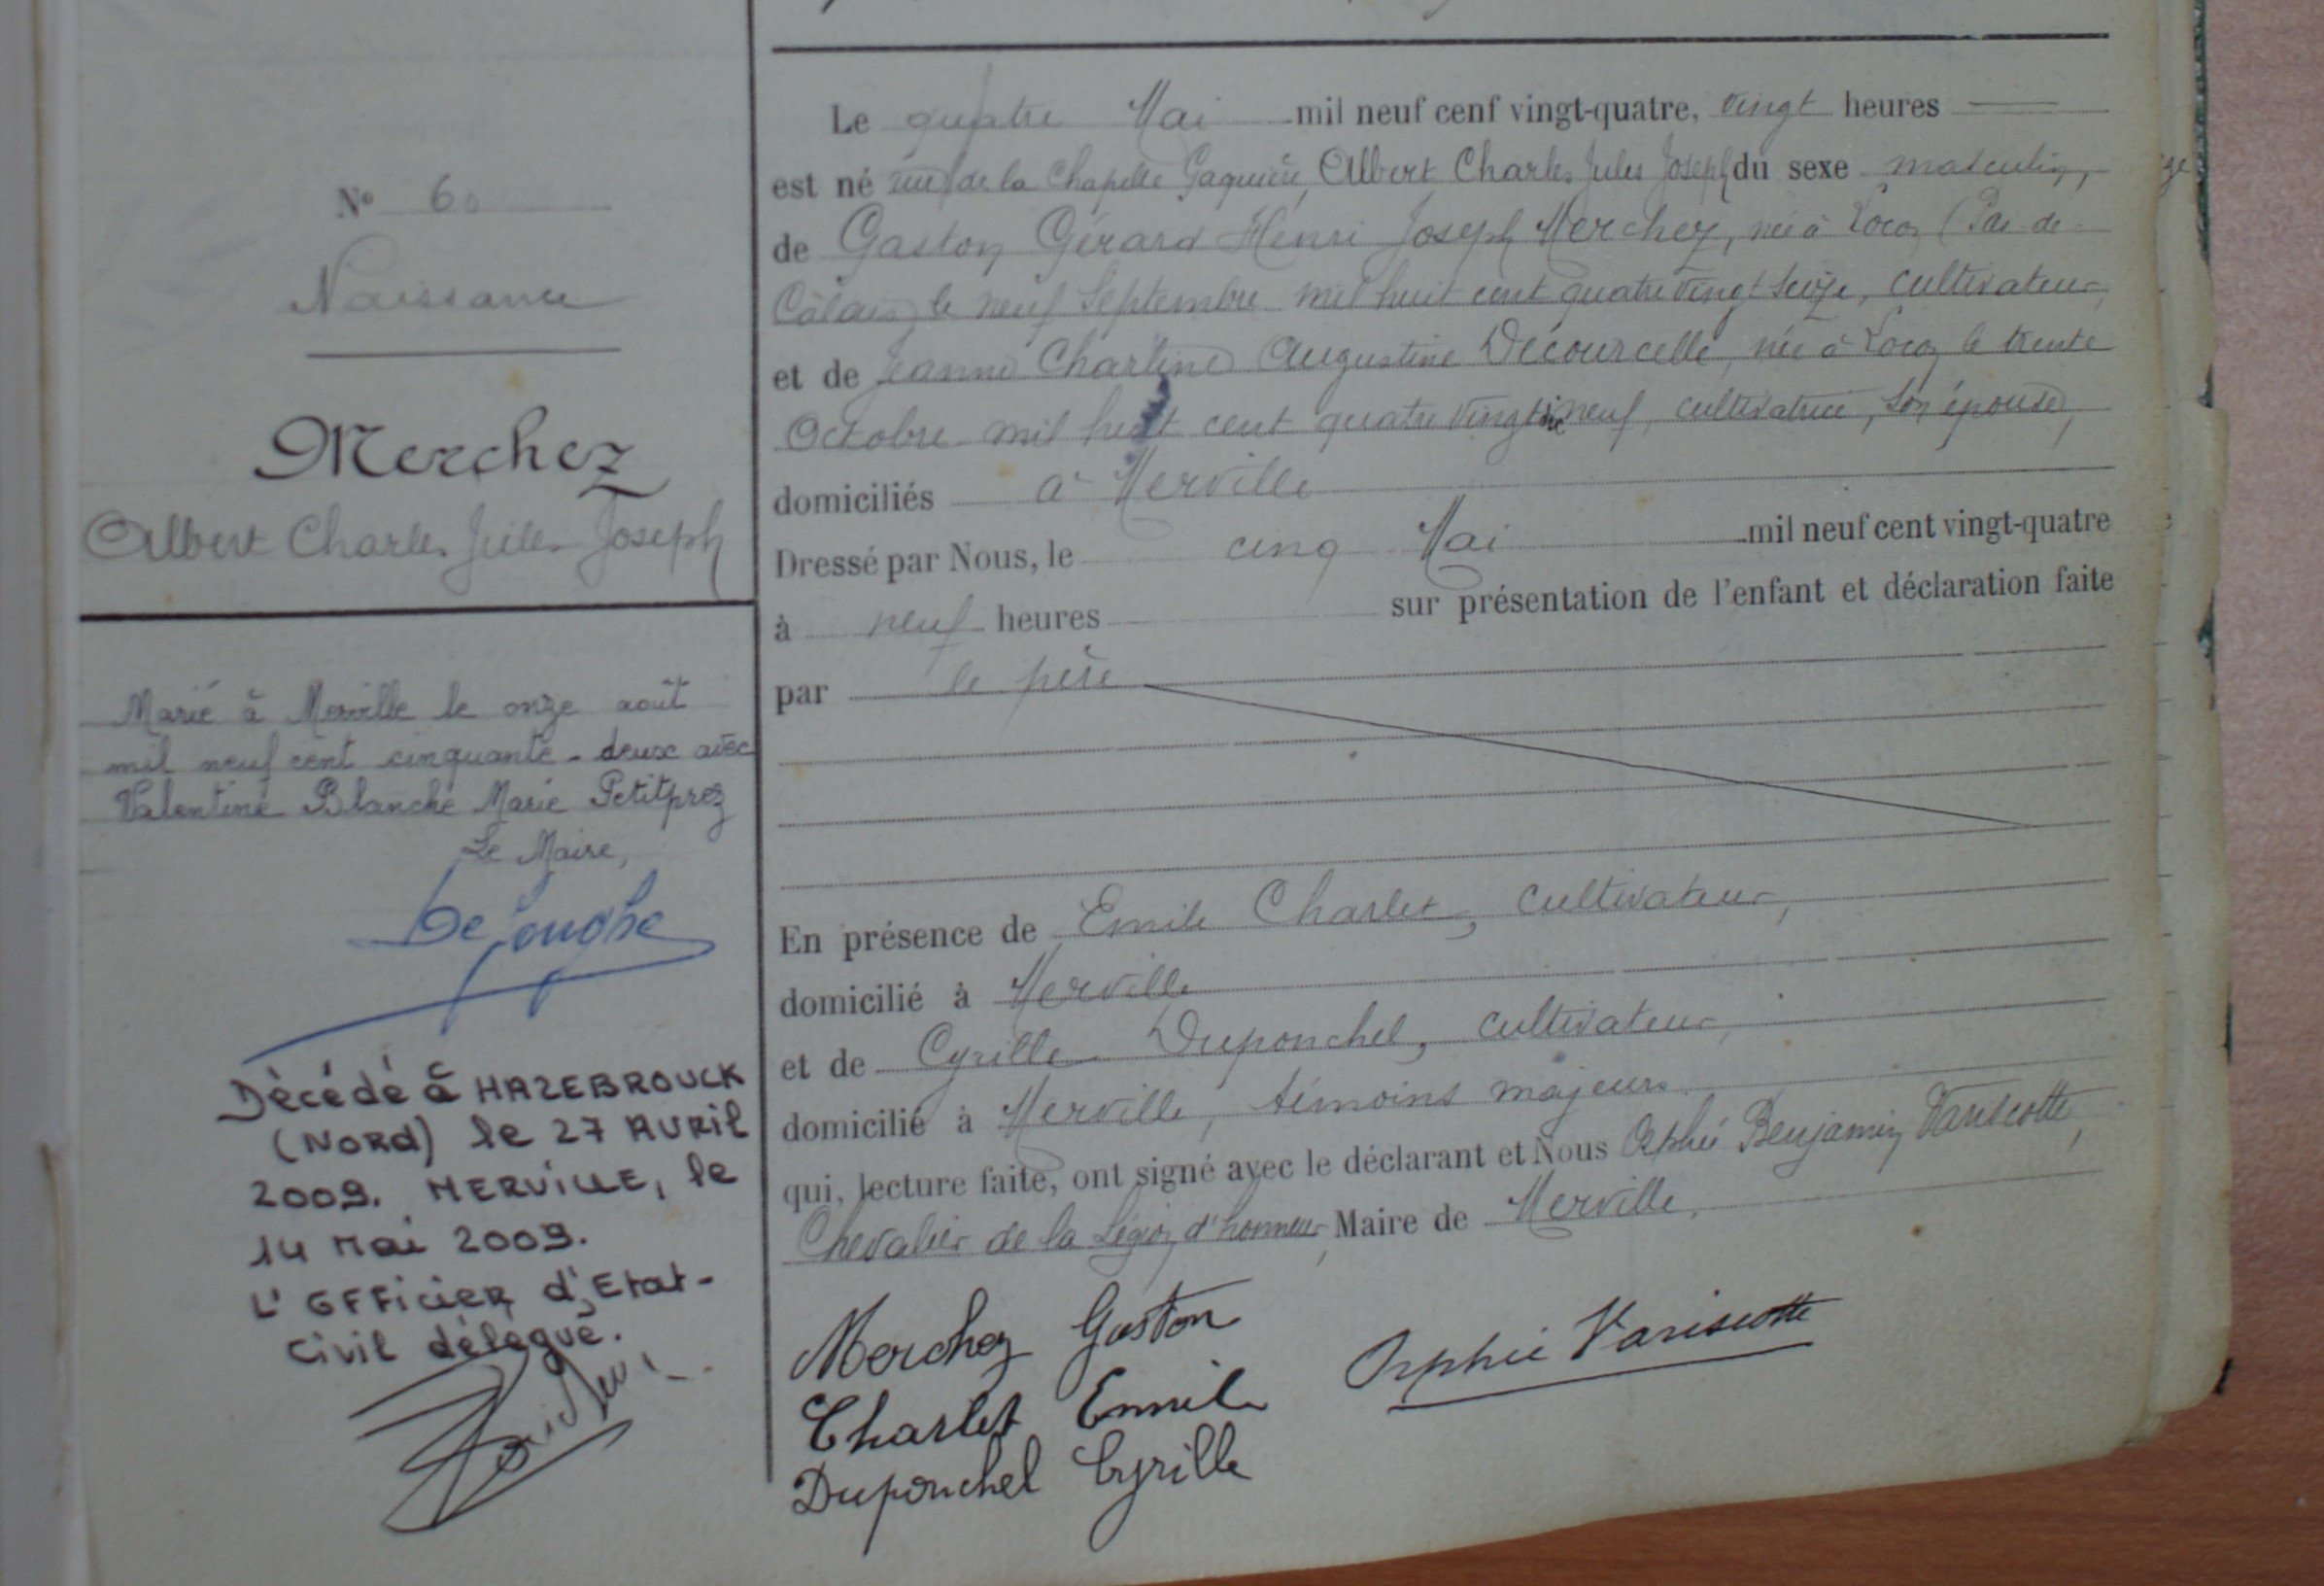 N° 60
Naissance
Merchez
Albert Charles Jules Joseph
Marié à Merville le onze août
mil neuf cent cinquante-deux avec
Valentine Blanche Marie Petitprez
Le Maire,
Décédé à HAZEBROUCK
(NORD) le 27 AVRIL
2009. MERVILLE, le
14 Mai 2009.
L'OFFicier d'Etat-
Civil délégué.
Le quatre Mai mil neuf cent vingt-quatre, vingt heures
est né rue de la Chapelle Gaquière, Albert Charles Jules Joseph du sexe masculin,
de Gaston Gérard Henri Joseph Merchez, né à Locon (Pas-de-
Calais) le neuf Septembre mil huit cent quatre vingt seize, cultivateur,
et de Jeanne Charline Augustine Decourcelle, née à Locon le trente
Octobre mil huit cent quatre vingt neuf, cultivatrice, son épouse,
domiciliés à Merville
Dressé par Nous, le cinq Mai mil neuf cent vingt-quatre
à neuf heures sur présentation de l'enfant et déclaration faite
par le père
En présence de Emile Charlet, cultivateur,
domicilié à Merville
et de Cyrille Duponchel, cultivateur,
domicilié à Merville, témoins majeurs
qui, lecture faite, ont signé avec le déclarant et Nous Orphée Benjamin Variscotte,
Chevalier de la Légion d'honneur, Maire de Merville.
Merchez Gaston
Charlet Emile
Duponchel Cyrille
Orphée Variscotte